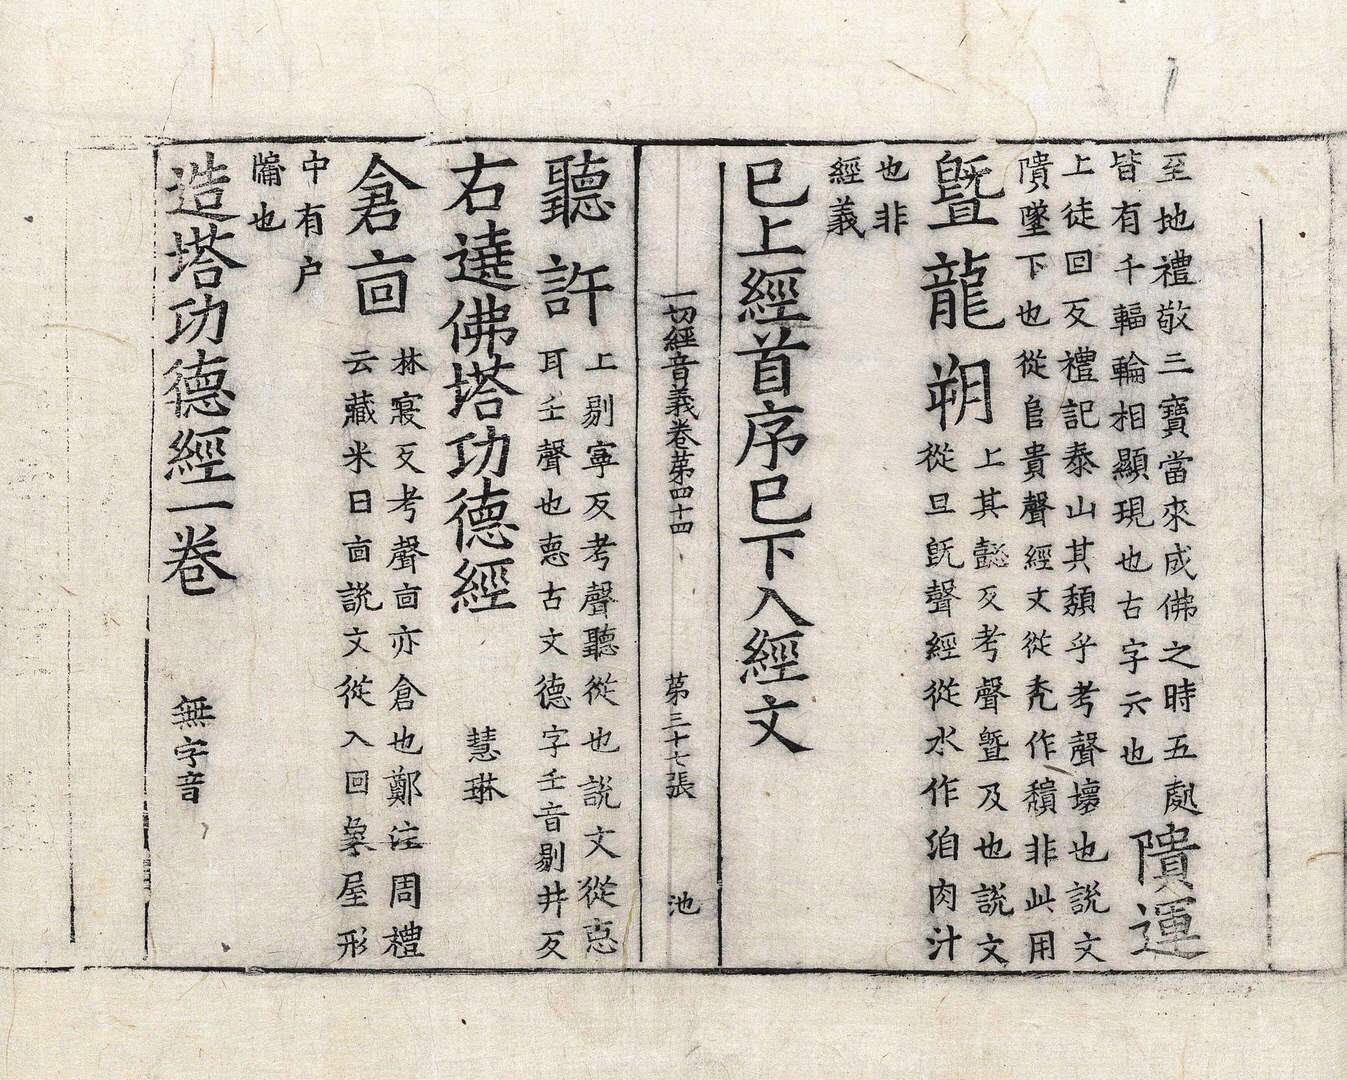 至地禮敬三寶當來成佛之時五處
皆有千輻輪相顯現也古字亦也
隤運
上徒回反禮記泰山其頹乎考聲壞也說文
隤墜下也從𨸏貴聲經文從禿作穨非此用
曁龍朔
上其懿反考聲曁及也說文
從旦旣聲經從水作洎肉汁
也非
經義
已上經首序已下入經文
一切經音義卷第四十四
第三十七張
池
聽許
上剔寧反考聲聽從也說文從悳
耳壬聲也悳古文德字壬音剔井反
右遶佛塔功德經
慧琳
倉㐭
林寢反考聲㐭亦倉也鄭注周禮
云藏米曰㐭說文從入回象屋形
中有户
牖也
造塔功德經一卷
無字音